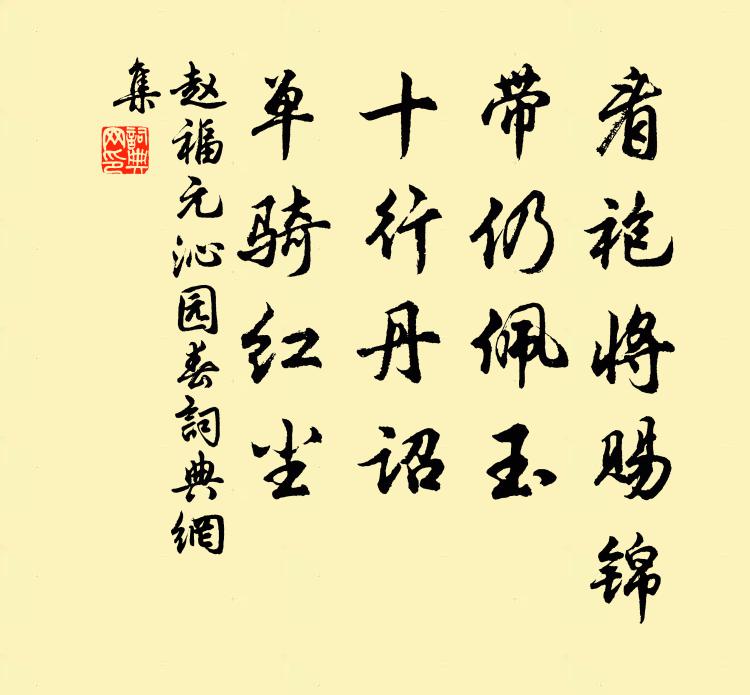 看袍将赐锦
带仍佩玉
十行丹诏
单骑红尘
赵福元沁园春詞典網
集
詞典网印